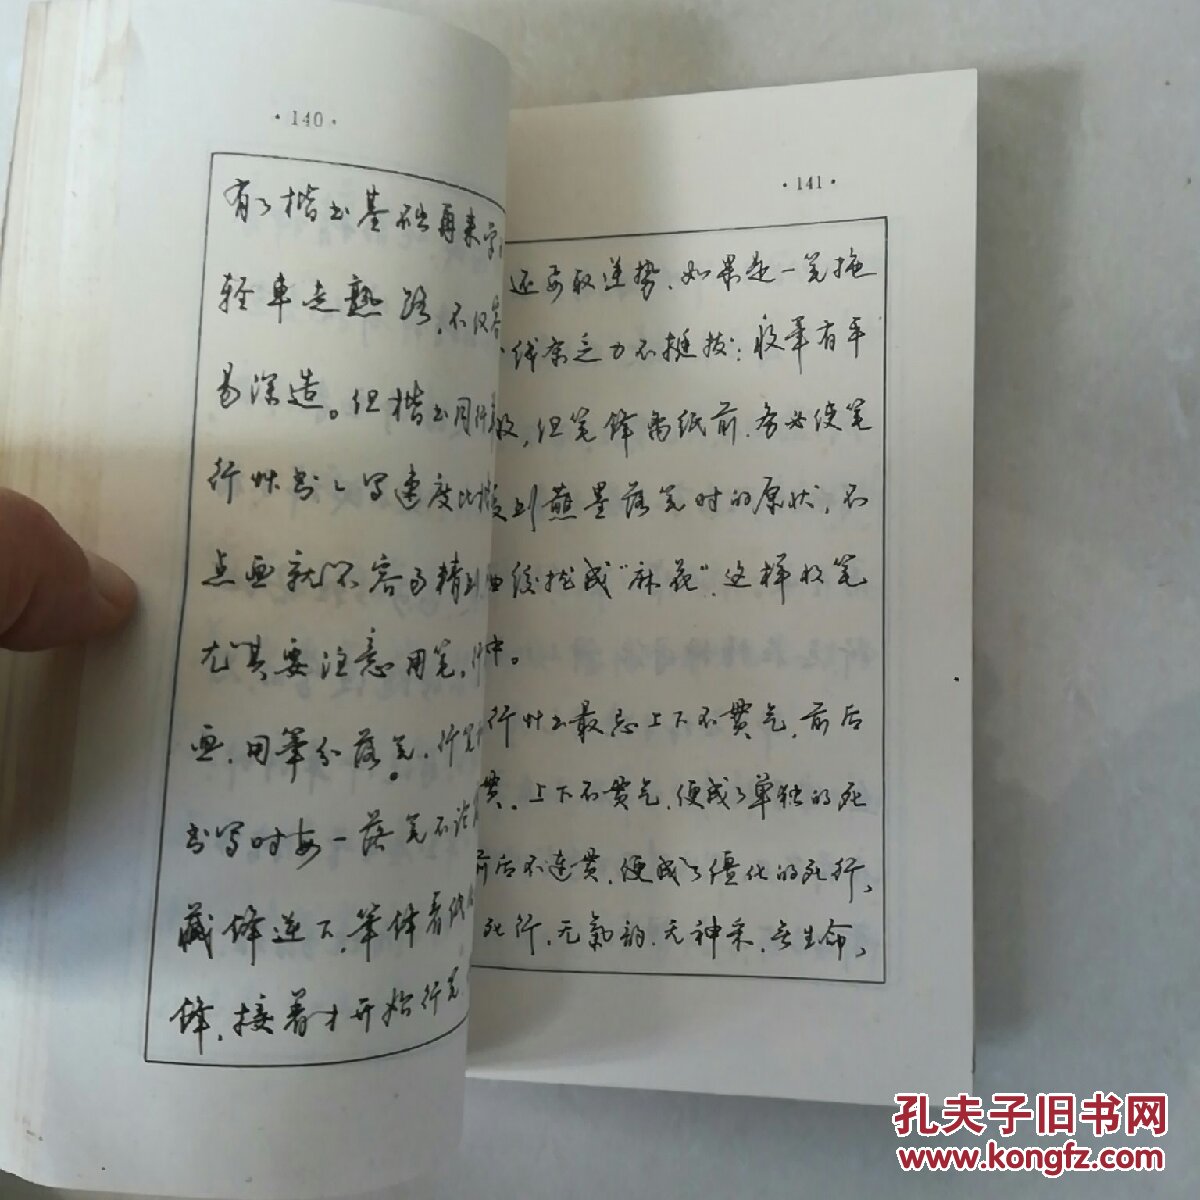 ·140·
有了楷书基础再来学
轻车走熟路,不仅容
易深造。但楷书同行
行草书、写速度比楷
点画就不容易精到
尤其要注意用笔,行
画,用笔分落笔、行笔
书写时每一落笔不论
藏锋逆下,笔锋着纸
锋,接着才开始行笔
·141·
还要取逆势,如果是一笔拖
线条乏力不挺拔;收笔有平
收,但笔锋离纸前,务必使笔
到蘸墨落笔时的原状,不
成“麻花”,这样收笔
中。
行草书最忌上下不贯气,前后
贯,上下不贯气,便成了单独的死
前后不连贯,便成了僵化的死行,
死行,无气韵,无神采,无生命,
孔夫子旧书网
www.kongfz.com